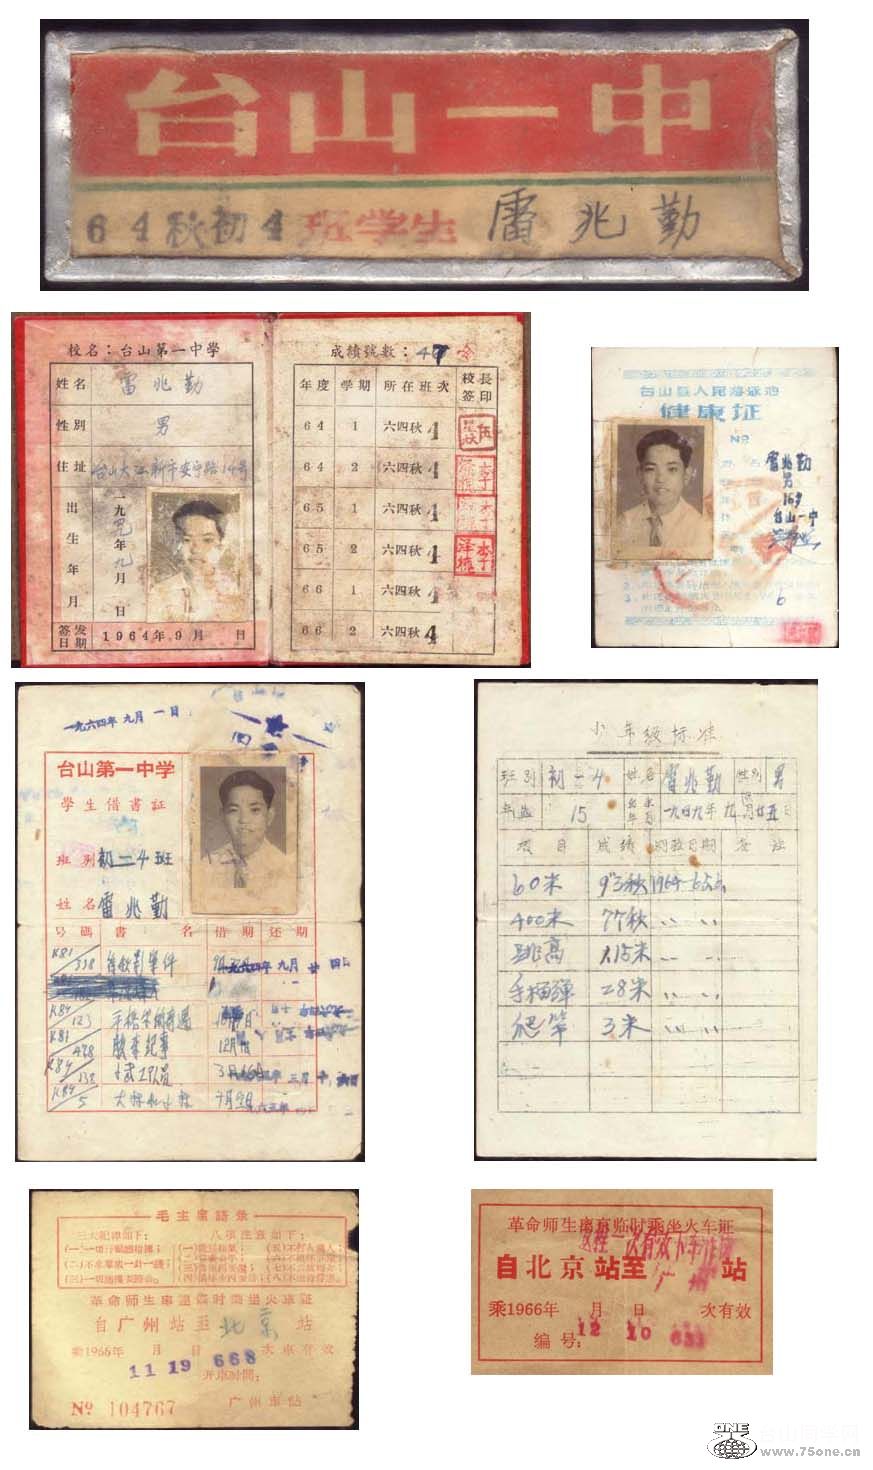 台山一中
64秋初4班学生 雷兆勤
校名：台山第一中學
姓名 雷兆勤
性別 男
住址 台山大江新市安宁路14号
出生年月 一九四九年九月 日
签发日期 1964年9月 日
成績號數：47
年度 学期 所在班次 校長签印
64 1 六四秋4
64 2 六四秋4
65 1 六四秋4
65 2 六四秋4
66 1 六四秋4
66 2 六四秋4
台山县人民游泳池
健康证
No
雷兆勤
男
16岁
台山一中
一九六四年九月一日
台山第一中学
学生借書証
班別 初一4班
姓名 雷兆勤
号碼 書名 借期 还期
K81/338
K84/123
K81/428 12月
K84/138 武工队员
K84/5
少年级标准
班别 初一4 姓名 雷兆勤 性别 男
年龄 15 一九四九年九月廿五日
项目 成绩 测验日期 备注
60米 9"3秒
400米 77秒 〃 〃
跳高 1.15米 〃 〃
手榴弹 28米 〃 〃
爬竿 3米 〃 〃
毛主席語录
三大紀律如下： 八項注意如下：
(一)一切行動听指揮；
(二)不拿羣众一針一綫；
(三)一切繳獲要归公。
(一)說話和氣；
(二)買賣公平；
(三)借東西要還；
(四)損坏东西要賠；
(五)不打人罵人；
(六)不損坏庄稼；
(七)不調戲婦女；
(八)不虐待俘虜。
革命师生串連临时乘坐火車証
自广州站至北京站
乘1966年 月 日 次車有效
11 19 668
开車时間：
No 104767
广州車站
革命师生离京临时乘坐火车证
自北京站至广州站
乘1966年 月 日 次有效
编号：
12 10
ONE
台山同学网
www.75one.cn